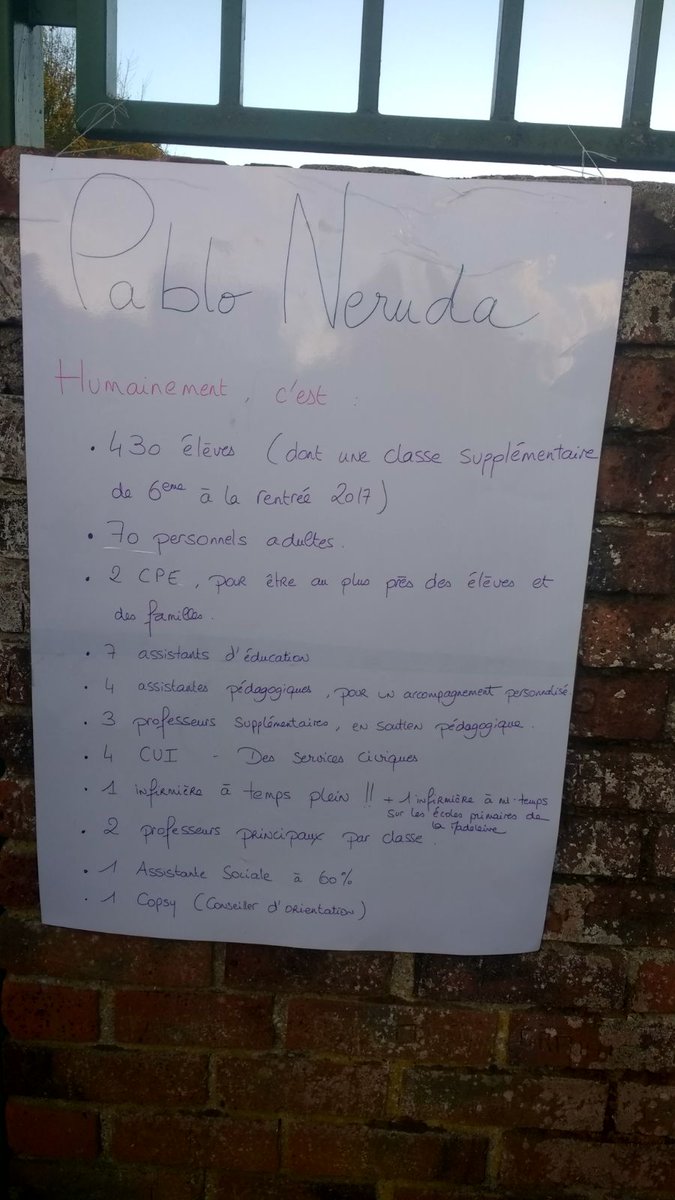 Pablo Neruda
Humainement, c'est :
• 430 élèves (dont une classe supplémentaire
de 6eme à la rentrée 2017)
• 70 personnels adultes.
• 2 CPE, pour être au plus près des élèves et
des familles.
• 7 assistants d'éducation
• 4 assistantes pédagogiques, pour un accompagnement personnalisé.
• 3 professeurs supplémentaires, en soutien pédagogique.
• 4 CUI - Des services civiques
• 1 infirmière à temps plein !! + 1 infirmière à mi-temps
sur les écoles primaires de
la Madeleine
• 2 professeurs principaux par classe.
• 1 Assistante Sociale à 60%
• 1 Copsy (Conseiller d'orientation)